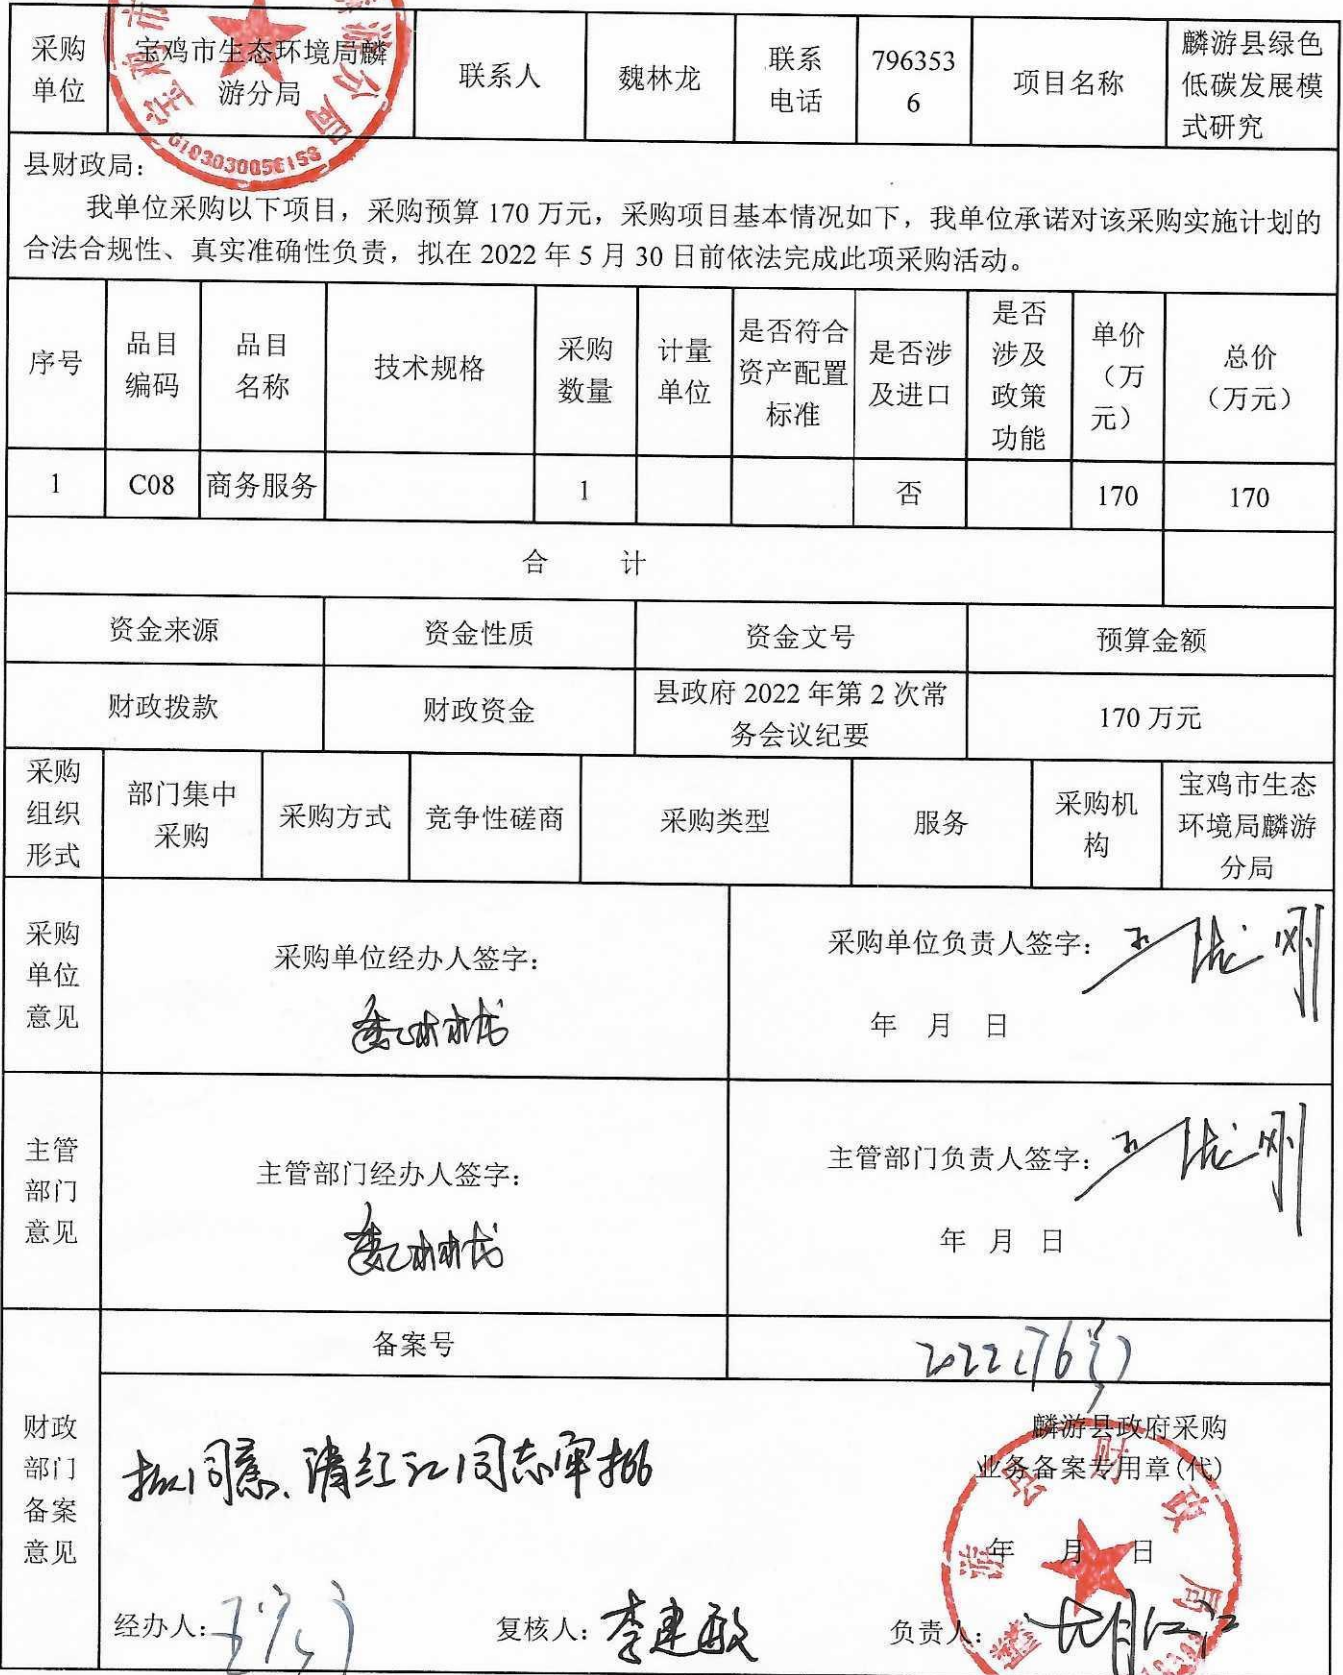 采购
单位
宝鸡市生态环境局麟
游分局
联系人
魏林龙
联系
电话
796353
6
项目名称
麟游县绿色
低碳发展模
式研究
县财政局：
我单位采购以下项目，采购预算 170 万元，采购项目基本情况如下，我单位承诺对该采购实施计划的
合法合规性、真实准确性负责，拟在 2022 年 5 月 30 日前依法完成此项采购活动。
序号
品目
编码
品目
名称
技术规格
采购
数量
计量
单位
是否符合
资产配置
标准
是否涉
及进口
是否
涉及
政策
功能
单价
（万
元）
总价
（万元）
1
C08
商务服务
1
否
170
170
合 计
资金来源
资金性质
资金文号
预算金额
财政拨款
财政资金
县政府 2022 年第 2 次常
务会议纪要
170 万元
采购
组织
形式
部门集中
采购
采购方式
竞争性磋商
采购类型
服务
采购机
构
宝鸡市生态
环境局麟游
分局
采购
单位
意见
采购单位经办人签字：
魏林龙
采购单位负责人签字：
年 月 日
主管
部门
意见
主管部门经办人签字：
魏林龙
主管部门负责人签字：
年 月 日
财政
部门
备案
意见
备案号
麟游县政府采购
业务备案专用章(代)
年 月 日
经办人：
复核人：李建敏
负责人：